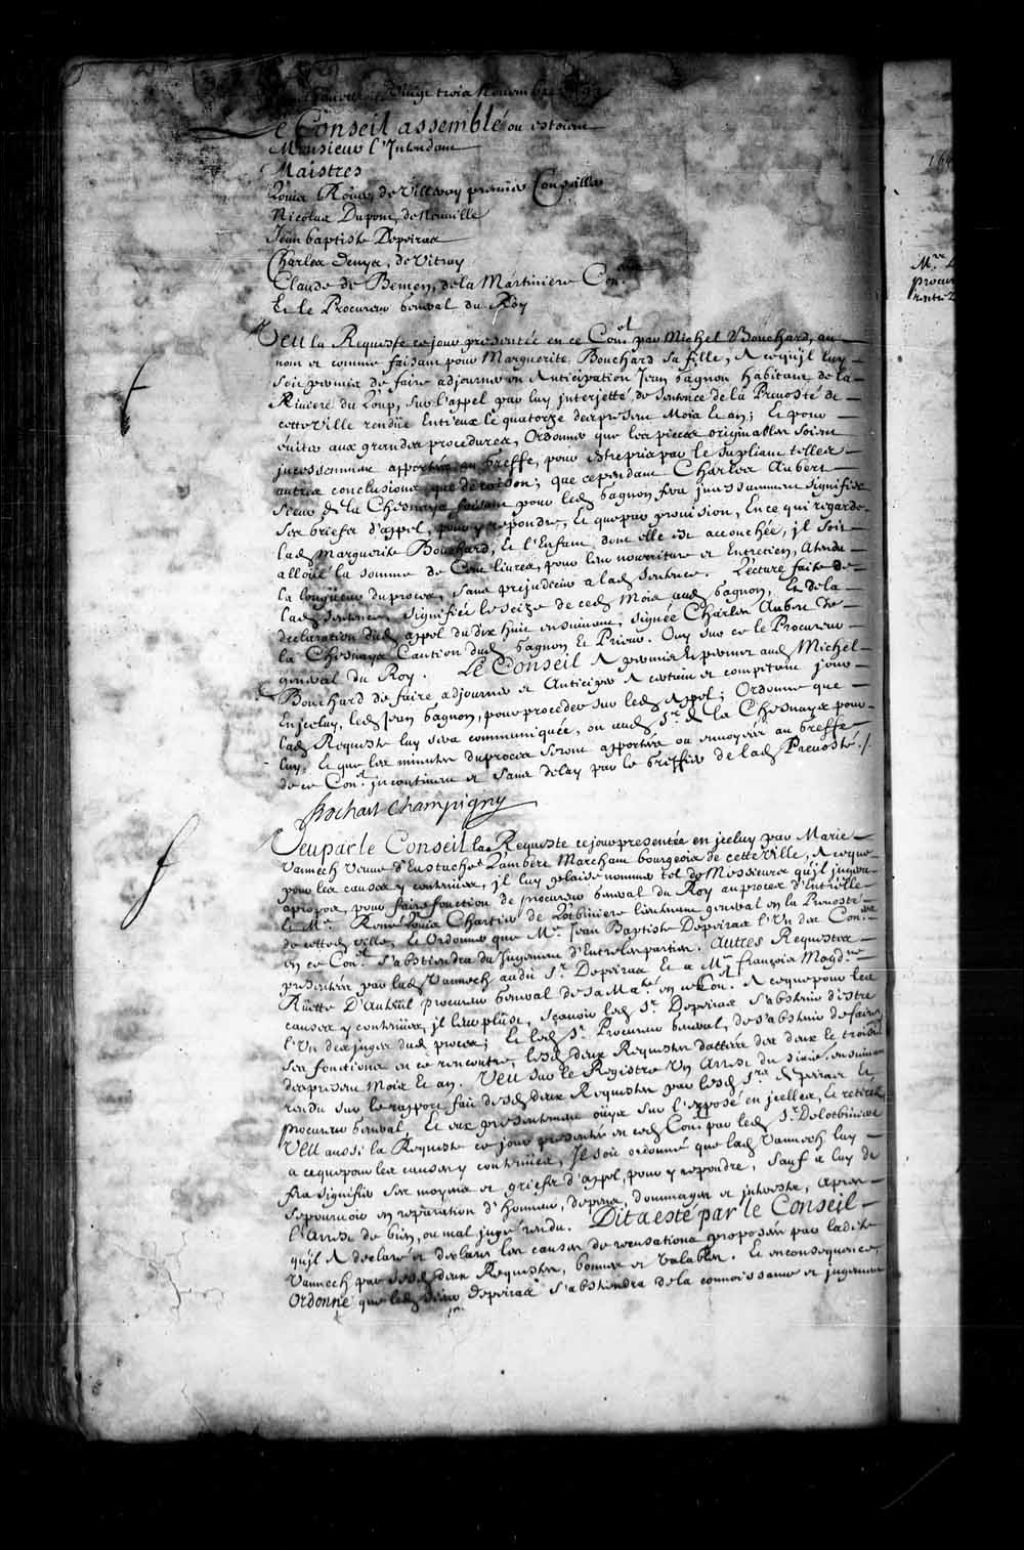 Vingt trois Novembre
Le Conseil assemblé ou estoient
Monsieur l'Intendant
Maistres
Louis Roüer de Villeray premier Conseiller
Nicolas Dupont de Neuville
Jean baptiste Depeiras
Charles Denys, de Vitray
Claude de Bermen, de la Martiniere Coners
Et le Procureur general du Roy
Veu la Requeste ce jour presentée en ce Conel par Michel Bouchard, au
nom et comme faisant pour Marguerite Bouchard sa fille, A ce qu'il luy
soit permis de faire adjourner en Anticipation Jean Gagnon habitant de la
Riviere du Loup, sur l'appel par luy interjetté, de sentence de la Prevosté de
cette Ville rendüe Entr'eux le quatorze des present Mois et an; Et pour
éviter aux grandes procedures, Ordonner que les pieces originalles soient
incessamment apportées au Greffe, pour estre pris par le supliant telles
autres conclusions que de raison; que cependant Charles Aubert
sieur de la Chesnaye faisant pour led Gagnon, fera incessamment signifier
ses briefs d'appel, pour y repondre, Et que par provision, En ce qui regarde
lad Marguerite Bouchard, Et l'Enfant dont elle est accouchée, il soit
alloüé la somme de Cent livres, pour leur nourriture et Entretien, Attendu
la longueur du procez, sans prejudicier a lad sentence. Lecture faite de
lad sentence, signifiée le seize de ced Mois aud Gagnon, Et de la
declaration dud appel du dix huit ensuivant, signée Charles Aubert de
la Chesnaye Caution dud Gagnon Et Prieur. Ouy sur ce le Procureur
general du Roy. Le Conseil A permis Et permet aud Michel
Bouchard de faire adjourner et Anticiper A certain et competent jour
En iceluy, led Jean Gagnon, pour proceder sur led Appel; Ordonne que
lad Requeste luy sera communiquée, ou aud Sr de la Chesnaye pour
luy, Et que les minutes du procez seront apportées ou envoyées au Greffe
de ce Conel incontinent et sans delay par le Greffier de lad Prevosté./.
Bochart Champigny
Veu par le Conseil la Requeste ce jour presentée en iceluy par Marie
Vannech Veuve d'Eustache Lambert Marchant bourgeois de cette Ville, A ce que
pour les causes y contenües, il luy plaise nommer tel de Messieurs qu'il jugera
apropos, pour faire fonction de procureur general du Roy au procez d'Entr'elle
Et Me René Louis Chartier de Lotbiniere lieutenant general en la Prevosté
de cetted Ville, Et Ordonner que Me Jean Baptiste Depeiras l'Un des Coners
en ce Conel s'abstiendra du Jugement d'Entre les parties. Autres Requestes
presentées par lad Vannech aud Sr Depeiras Et a Me françois Magdne
Rüette D'Auteüil procureur general de sa Maté en ce Conel A ce que pour les
causes y contenües, il leur plust, sçavoir led Sr Depeiras s'abstenir d'estre
l'Un des juges dud procez; Et led Sr Procureur general, de s'abstenir de faire
ses fonctions en ce rencontre, lesd deux Requestes dattées des deux et trois
des present Mois et an. Veu sur le Registre Un Arrest du sixie ensuivant
rendu sur le rapport fait desd deux Requestes par lesd Srs Depeiras Et
procureur general, Et eux presentement oüys sur l'exposé en icelles, Et retirez
Veu aussi la Requeste ce jour presentée en ced Conel par led Sr Delotbiniere
a ce que pour les causes y contenües, Il soit ordonné que lad Vannech luy
fera signifier ses moyens et griefs d'appel, pour y repondre, sauf a luy de
se pourvoir en reparation d'honneur, depens, dommages et interests, apres
l'Arrest de bien, ou mal jugé rendu. Dit a esté par le Conseil
qu'il A declaré et declare les causes de recusations proposées par ladite
Vannech par sesd deux Requestes, bonnes et valables. Et en consequence,
Ordonne que led sieur Depeiras s'abstiendra de la connoissance et jugement